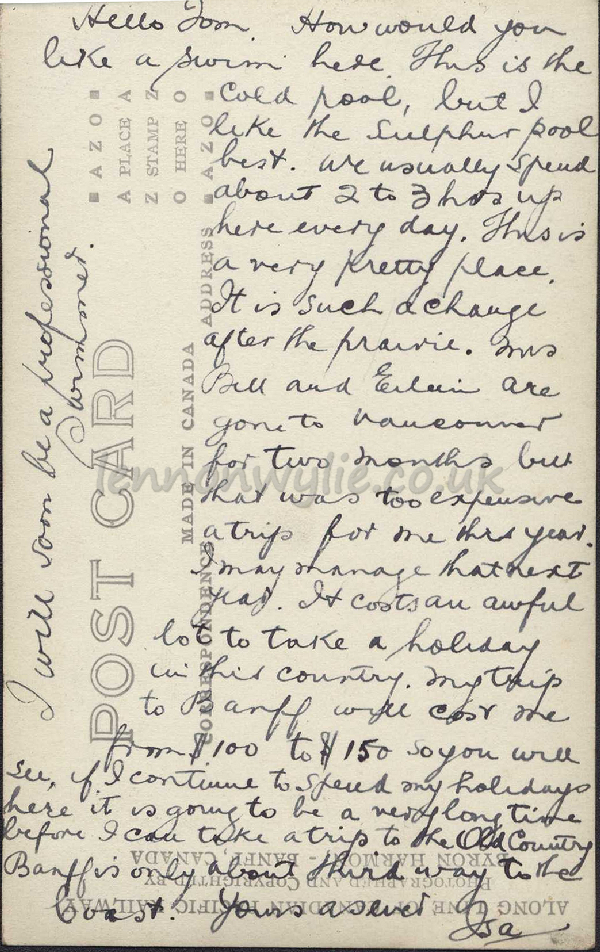 Hello Tom. How would you
like a swim here. This is the
cold pool, but I
like the Sulphur pool
best. We usually spend
about 2 to 3 hrs up
here every day. This is
a very pretty place.
It is such a change
after the prairie. Mrs
Bell and Eileen are
gone to Vancouver
for two months but
that was too expensive
a trip for me this year.
I may manage that next
year. It costs an awful
lot to take a holiday
in this country. My trip
to Banff will cost me
from $100 to $150 so you will
see, if I continue to spend my holidays
here it is going to be a very long time
before I can take a trip to the Old Country
Banff is only about third way to the
Coast. Yours as ever Isa
I will soon be a professional
swimmer.
POST CARD
MADE IN CANADA
CORRESPONDENCE
ADDRESS
AZO
A PLACE A
Z STAMP Z
O HERE O
AZO
ALONG LINE OF CANADIAN PACIFIC RAILWAY
PHOTOGRAPHED AND COPYRIGHTED BY
BYRON HARMON - BANFF, CANADA
lennonwylie.co.uk